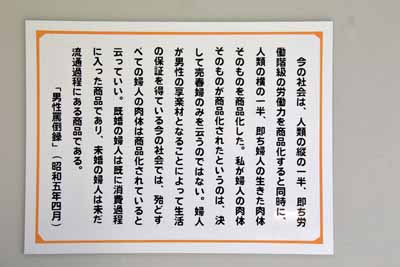 今の社会は、人類の縦の一半、即ち労
働階級の労働力を商品化すると同時に、
人類の横の一半、即ち婦人の生きた肉体
そのものを商品化した。私が婦人の肉体
そのものが商品化されたというのは、決
して売春婦のみを云うのではない。婦人
が男性の享楽材となることによって生活
の保証を得ている今の社会では、殆どす
べての婦人の肉体は商品化されていると
云っていい。既婚の婦人は既に消費過程
に入った商品であり、未婚の婦人は未だ
流通過程にある商品である。
「男性罵倒録」（昭和五年四月）